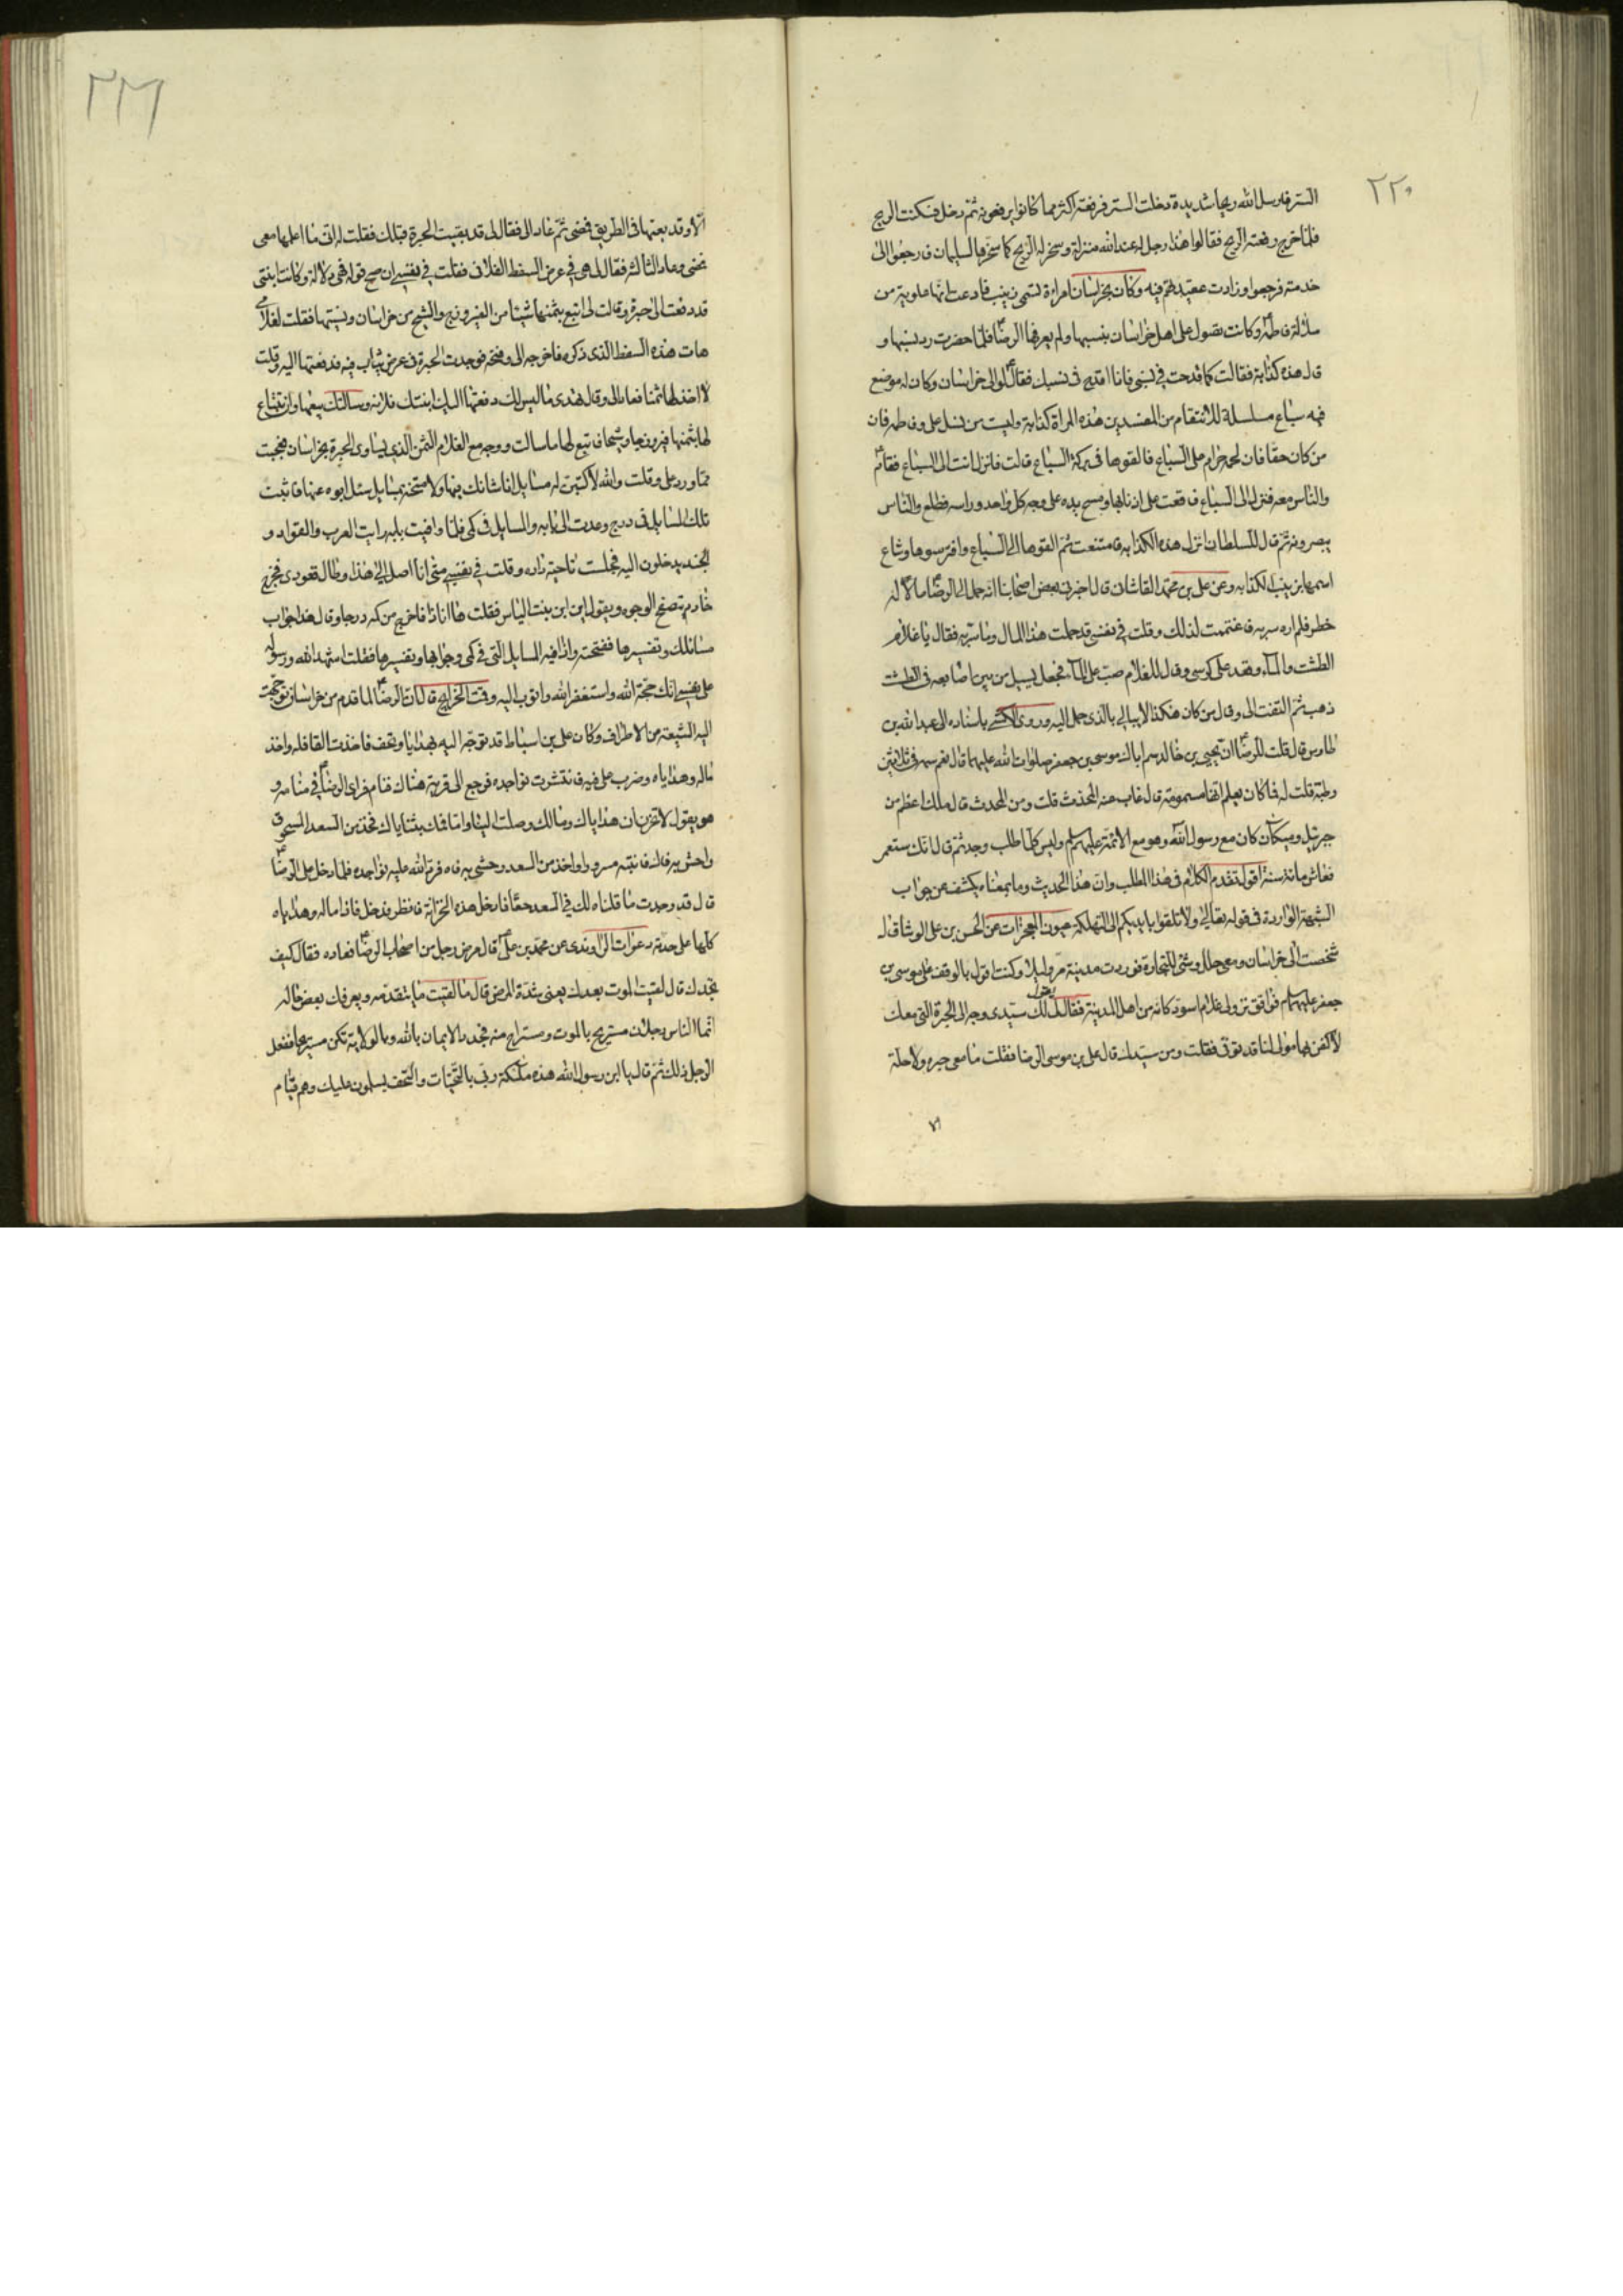 ٢٢٠
الستر فارسل الله ريحا شديدة دخلت الستر فرفعته اكثر مما كانوا يرفعونه ثم دخل فسكنت الريح
فلما خرج رفعته الريح فقالوا هذا رجل له عند الله منزلة وسخر له الريح كما سخرها لسليمان فارجعوا الى
خدمته فرجعوا وزادت عقيدتهم فيه وكان بخراسان امراءة تسمى زينب فادعت انها علوية من
سلالة فاطمة وكانت تصول على اهل خراسان بنسبها ولم يعرفها الرضا فلما حضرت رد نسبها و
قال هذه كذابة فقالت كما قدحت في نسبي فانا اقدح في نسبك فقال لوالى خراسان وكان له موضع
فيه سباع مسلسلة للانتقام من المفسدين هذه المراة كذابة وليست من نسل على وفاطمه فان
من كان حقا فان لحمه حرام على السباع فالقوها في بركة السباع قالت فانزل انت الى السباع فقام
والناس معه فنزل الى السباع فاقعت على اذنابها ومسح يده على وجه كل واحد وراسه فطلع والناس
يبصرونه ثم قال للسلطان انزل هذه الكذابه فامتنعت ثم القوها الى السباع وافترسوها وشاع
اسمها بزينب الكذابه وعن على بن محمد القاشان قال اخبرنى بعض اصحابنا انه حمل الى الرضا مالا له
خطر فلم اره سر به فاغتممت لذلك وقلت في نفسي قد حملت هذا المال وما سر به فقال يا غلام
الطشت والماء وقعد على كرسى وقال للغلام صب على الماء فجعل يسيل من بين اصابعه في الطشت
ذهب ثم التفت الى وقال من كان هكذا لا يبالى بالذى حمل اليه وروى الكشى باسناده الى عبد الله بن
طاوس قال قلت للرضا ان يحيى بن خالد سم اباك موسى بن جعفر صلوات الله عليهما قال نعم سمه في ثلاثين
رطبة قلت له فما كان يعلم انها مسمومة قال غاب عنه المحدث قلت ومن المحدث قال ملك اعظم من
جبرئيل وميكائل كان مع رسول الله وهو مع الائمة عليهم سلم وليس كلما طلب وجد ثم قال انك ستعمر
فعاش مائة سنة اقول تقدم الكلام في هذا المطلب وان هذا الحديث وما بمعناه يكشف عن جواب
الشبهة الواردة في قوله تعالى ولا تلقوا بايديكم الى التهلكة عيون المعجزات عن الحسن بن على الوشا قال
شخصت الى خراسان ومعى حلل وشى للتجارة فوردت مدينة مرو ليلا وكنت اقول بالوقف على موسى بن
جعفر عليهم سلام فوافق نزولى غلام اسود كانه من اهل المدينة فقال لك سيدى وجه الى الحبرة التى معك
لاكفن بها مولى لنا قد توفى فقلت ومن سيدك قال على بن موسى الرضا فقلت ما معى حبره ولا حلة
الا
الا وقد بعتها في الطريق فمضى ثم عاد الى فقال لى قد بقيت الحبرة قبلك فقلت له انى ما اعلمها معى
فمضى وعاد الثالثه فقال لى هى في عرض السفط الفلانى فقلت في نفسي ان صح قوله فهى دلالة وكانت ابنتى
قد دفعت الى حبرة وقالت لى ابتع بثمنها شيئا من الفيروزج والشيح من خراسان ونسيتها فقلت لغلامى
هات هذه السفط الذى ذكره فاخرجه الى وفتحه فوجدت الحبرة في عرض ثياب فيه فدفعتها اليه وقلت
لا اخذ لها ثمنا فعاد الى وقال تهدى ما ليس لك دفعتها اليك ابنتك فلانه وسالتك بيعها وان تبتاع
لها بثمنها فيروزجا وشيحا فابتع لها ما سالت ووجه مع الغلام الثمن الذي يساوى الحبرة بخراسان فعجبت
مما ورد على وقلت والله لاكتبن له مسايل انا شاك فيها ولامتحنه بمسايل سئل ابوه عنها فاثبت
تلك المسايل في درج وعدت الى بابه والمسايل في كمى فلما وافيت بابه رايت العرب والقواد و
الجند يدخلون اليه فجلست ناحية داره وقلت في نفسي متى انا اصل الى هذا وطال قعودى فخرج
خادم يتصفح الوجوه ويقول اين ابن بنت الياس فقلت ها انا ذا فاخرج من كمه درجا وقال هذا جواب
مسائلك وتفسيرها ففتحته واذا فيه المسايل التى في كمى وجوابها وتفسيرها فقلت اشهد الله ورسوله
على نفسي انك حجة الله واستغفر الله واتوب اليه وفى الخرايج قال ان الرضا لما قدم من خراسان توجهت
اليه الشيعة من الاطراف وكان على بن اسباط قد توجه اليه بهدايا وتحف فاخذت القافله واخذ
ماله وهداياه وضرب على فيه فانتثرت نواجده فرجع الى قرية هناك فنام فراى الرضا في منامه و
هو يقول لا تحزن ان هداياك ومالك وصلت الينا واما فمك بثناياك فخذ من السعد المسحوق
واحش به فاك فانتبه مسرورا واخذ من السعد وحشى به فاه فرد الله عليه نواجده فلما دخل على الرضا
قال قد وجدت ما قلناه لك في السعد حقا فادخل هذه الخزانة فانظر فدخل فاذا ماله وهداياه
كلها على حدته دعوات الراوندى عن محمد بن على قال مرض رجل من اصحاب الرضا فعاده فقال كيف
تجدك قال لقيت الموت بعدك يعنى شدة المرض قال ما لقيت ما يتقدمه ويعرفك بعض حاله
انما الناس رجلان مستريح بالموت ومستراح منه فجدد الايمان بالله وبالولاية تكن مستريحا ففعل
الرجل ذلك ثم قال يا ابن رسول الله هذه ملئكة ربى بالتحيات والتحف يسلمون عليك وهم قيام